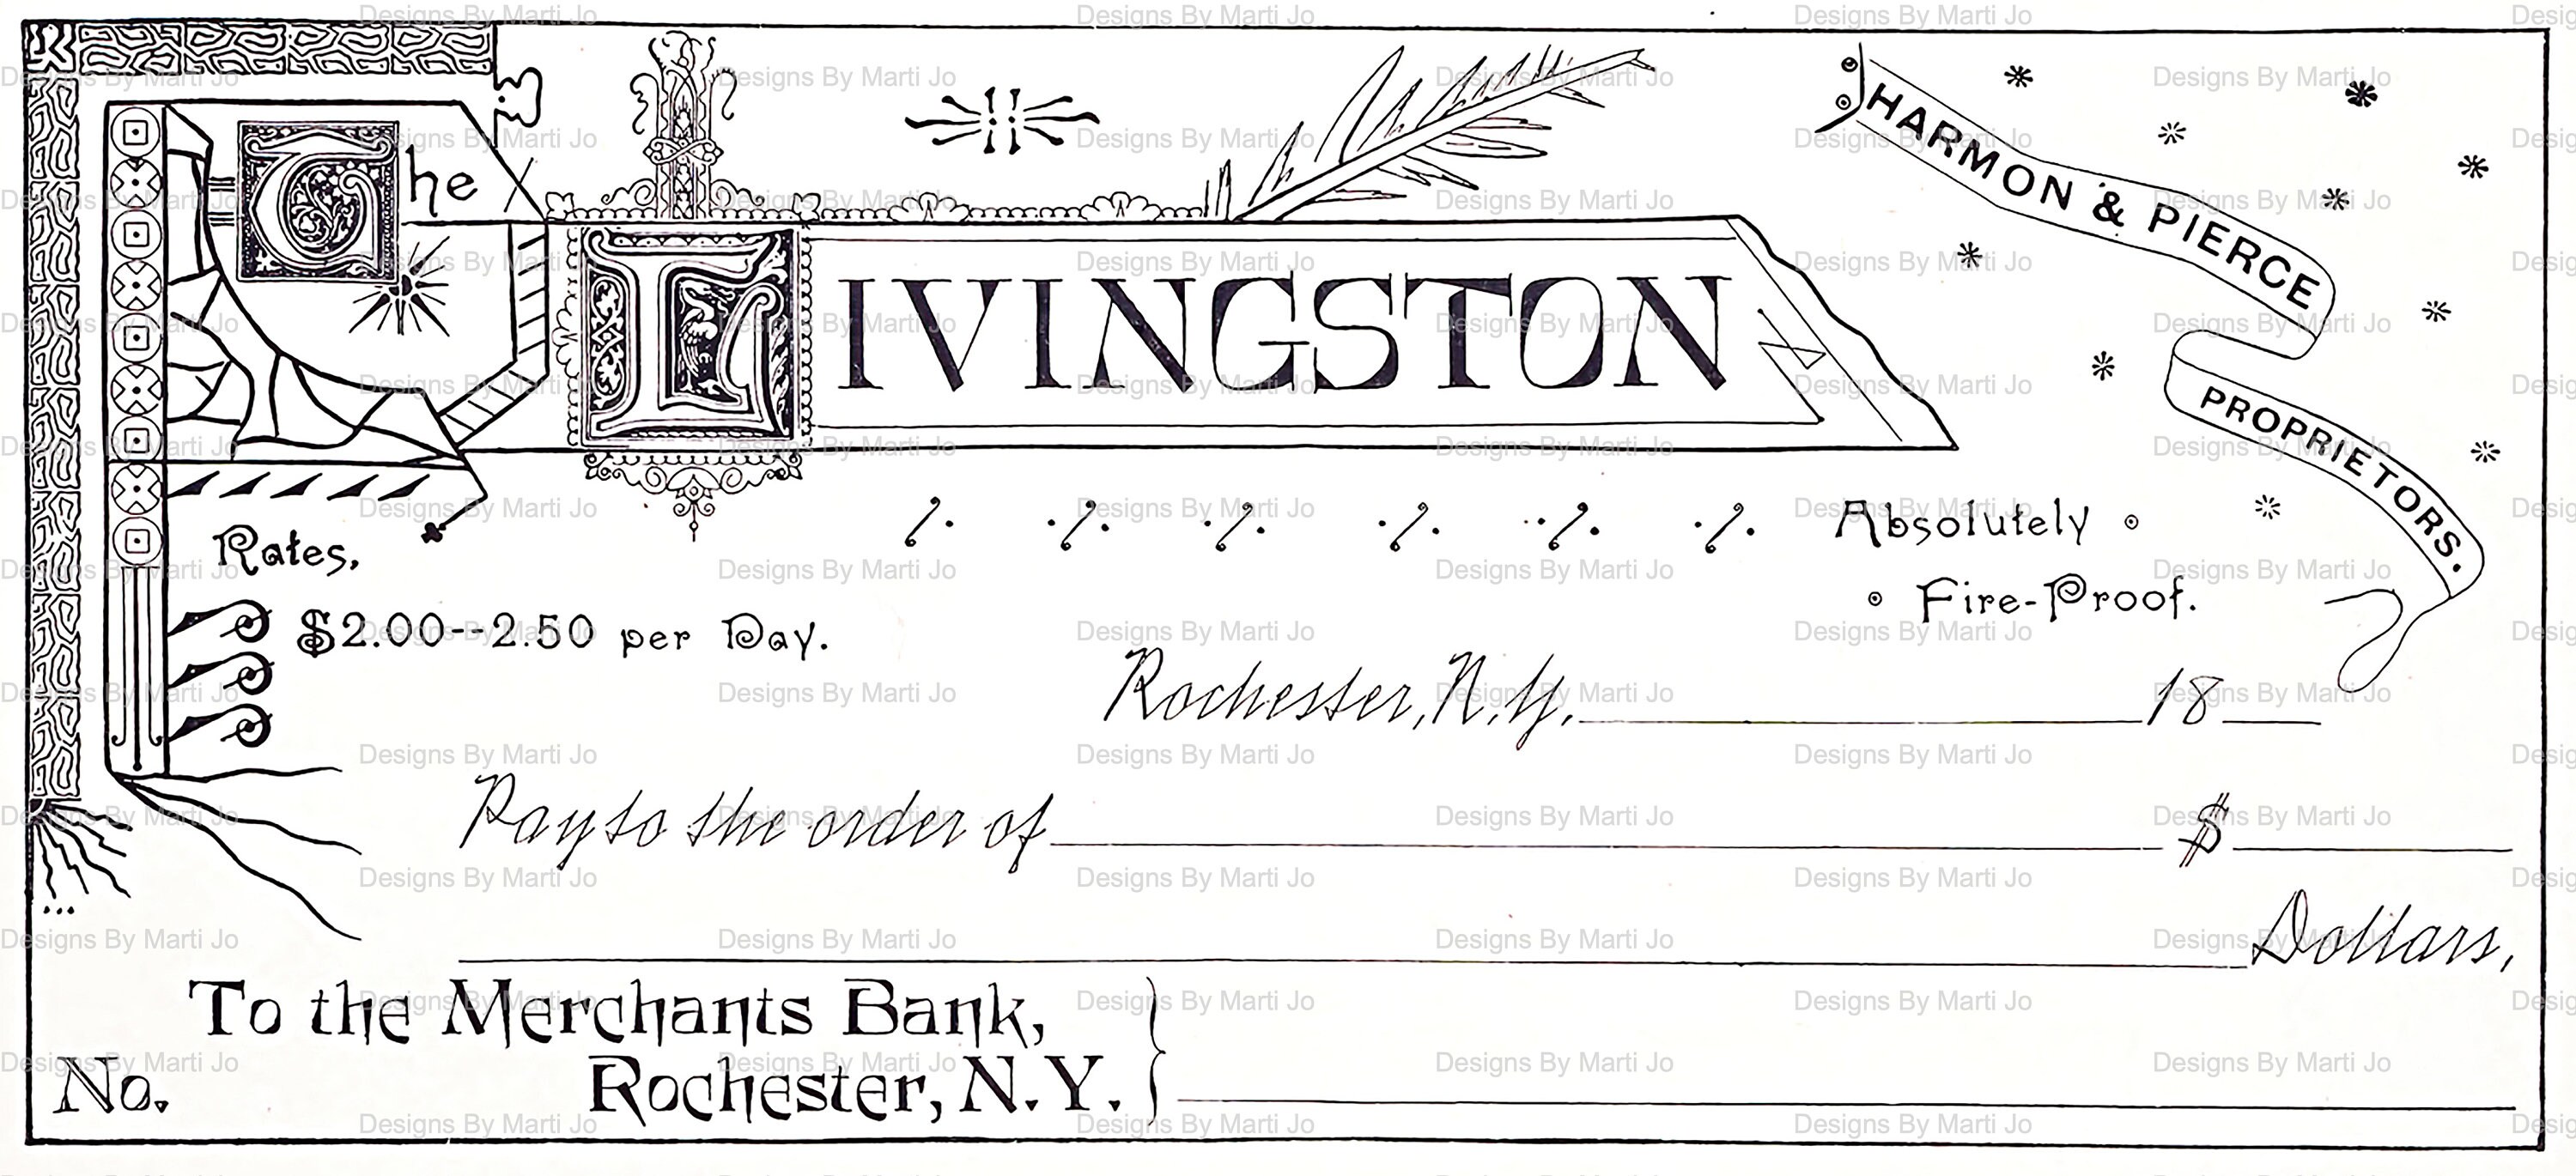 The LIVINGSTON
HARMON & PIERCE
PROPRIETORS.
Absolutely
Fire-Proof.
Rates,
$2.00--2.50 per Day.
Rochester, N.Y. 18
Pay to the order of $
Dollars,
To the Merchants Bank,
Rochester, N.Y.
No.
Designs By Marti Jo